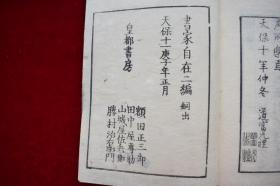 天保十年仲冬
畫家自在二編 嗣出
天保十一庚子年正月
皇都書房
額田正三郎
田中屋專助
山城屋佐兵衛
勝村治右衛門